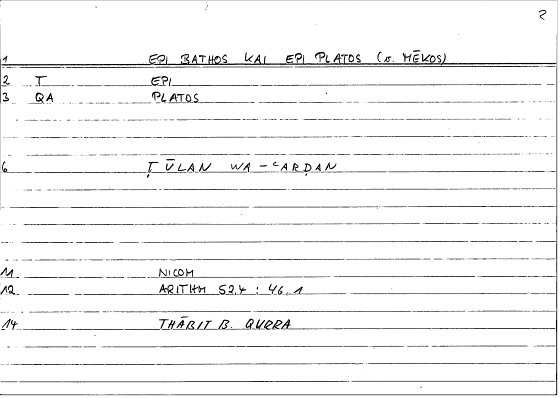 2
1 EPI BATHOS KAI EPI PLATOS (s. MĒKOS)
2 T EPI
3 QA PLATOS
6 ṬŪLAN WA-ʿARḌAN
11 NICOM
12 ARITHM 52,4 : 46,1
14 THĀBIT B. QURRA